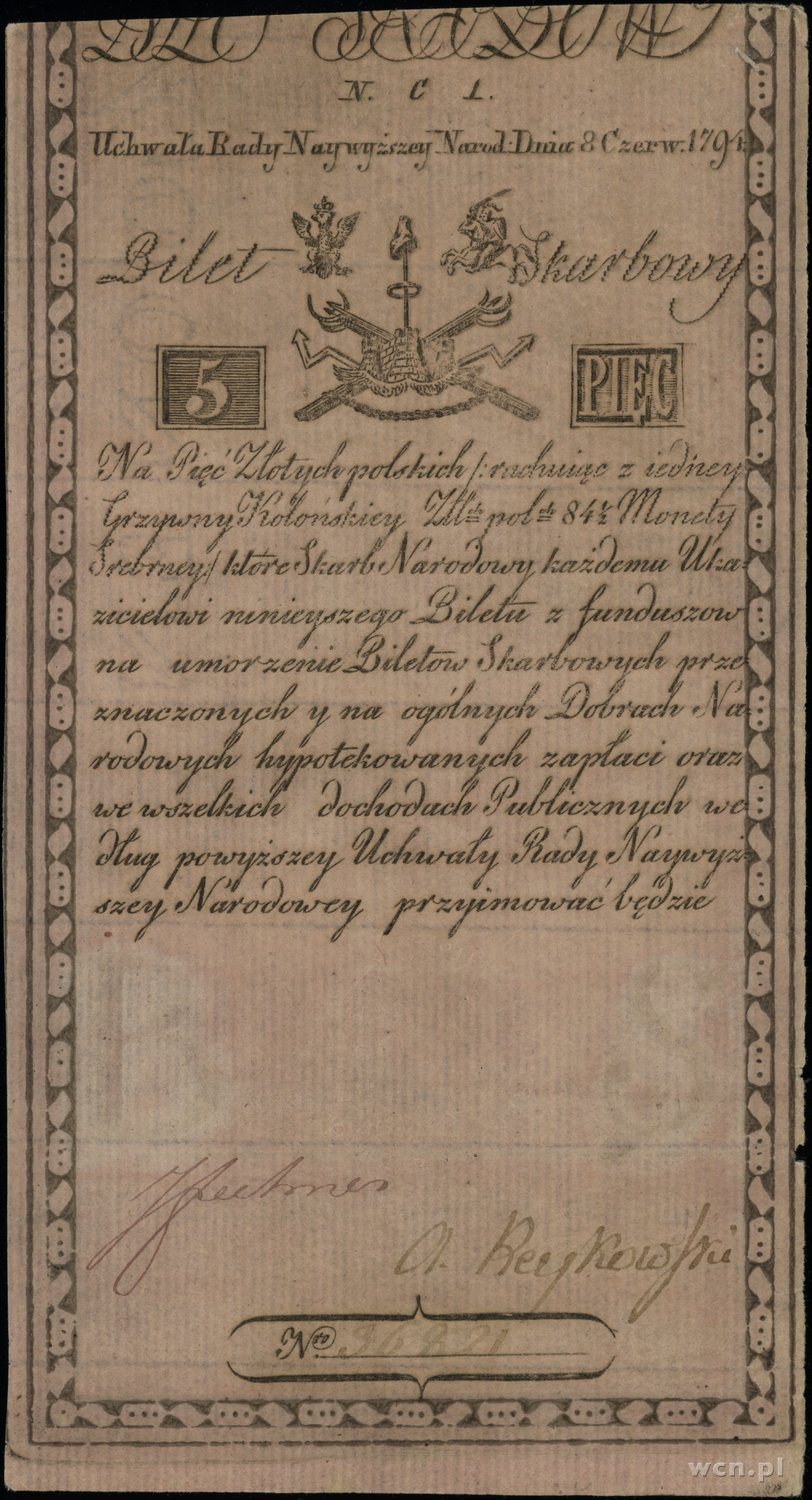 N. C 1.
Uchwała Rady Naywyższey Narod: Dnia 8 Czerw. 1794
Bilet Skarbowy
5 PIĘĆ
Na Pięć Złotych polskich /: rachuiąc z iedney
Grzywny Kolońskiey Złł:ch pol:ch 84½ Monety
Srebrney:/ które Skarb Narodowy każdemu Uka-
zicielowi ninieyszego Biletu z funduszow
na umorzenie Biletow Skarbowych prze
znaczonych y na ogólnych Dobrach Na-
rodowych hypotekowanych zapłaci oraz
we wszelkich dochodach Publicznych we
dług powyższey Uchwały Rady Naywyż-
szey Narodowey przyimować będzie
A. Reykowski
No 36821
wcn.pl